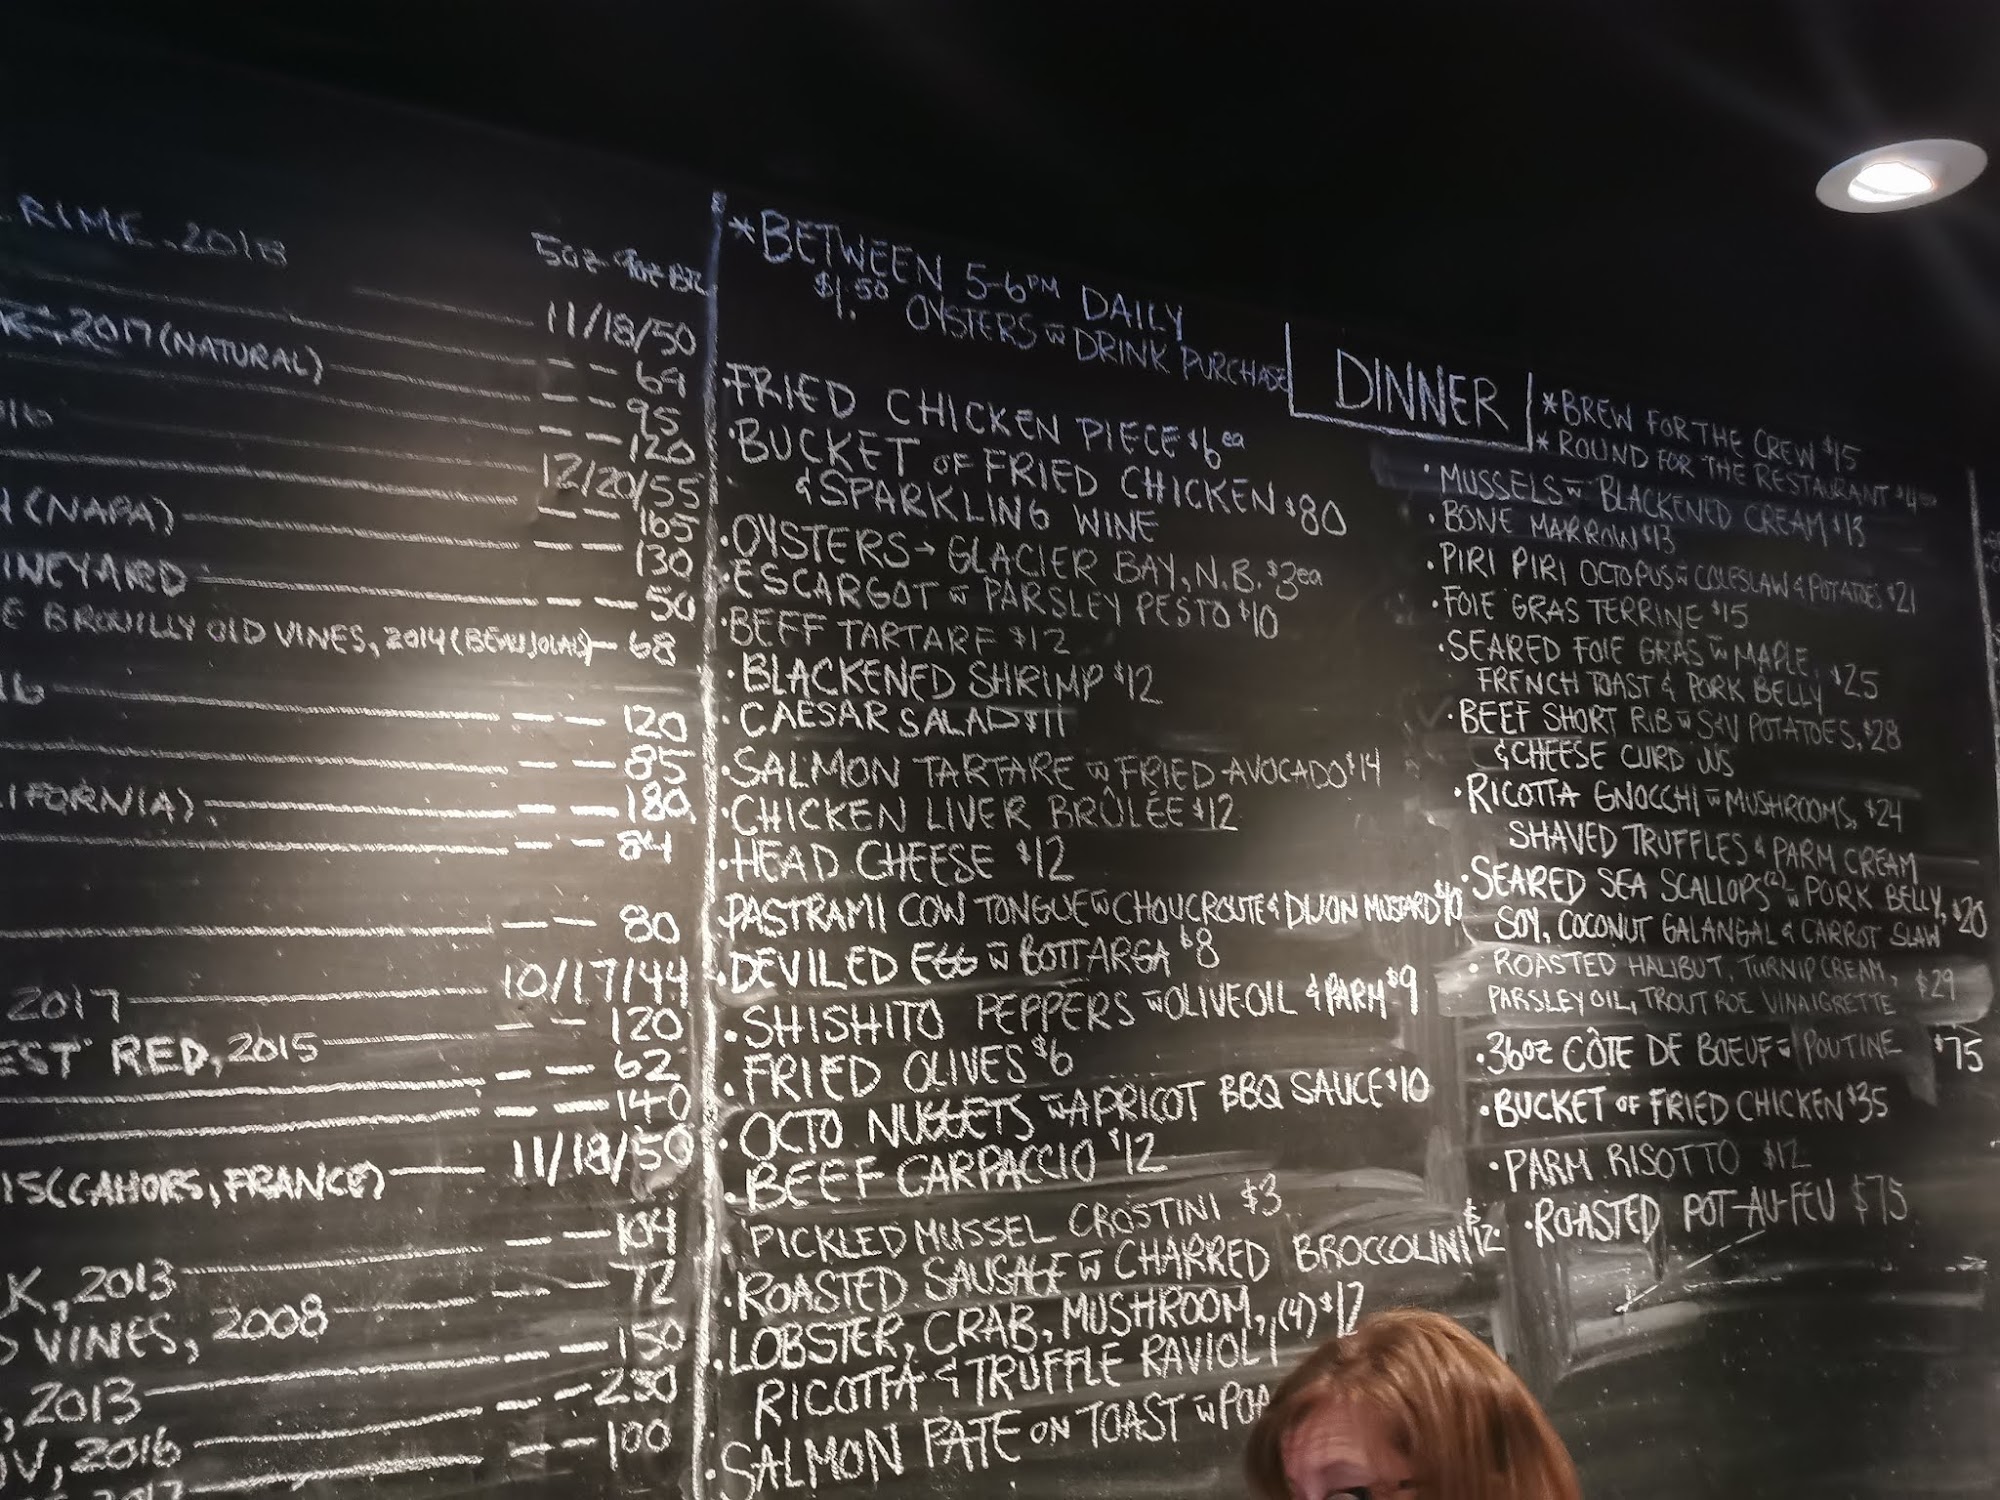 RIME 2018
5oz
11/18/50
2017 (NATURAL) 69
95
016 120
12/20/55
(NAPA) 165
130
INEYARD 50
E BROUILLY OLD VINES, 2014 (BEAUJOLAIS) 68
16
120
85
IFORNIA) 180
84
80
2017 10/17/44
EST RED, 2015 120
62
140
15 (CAHORS, FRANCE) 11/18/50
104
K, 2013 72
D VINES, 2008 150
, 2013 230
OV, 2016 100
2017
*BETWEEN 5-6PM DAILY
$1.50 OYSTERS w DRINK PURCHASE
DINNER
FRIED CHICKEN PIECE $6 ea
·BUCKET OF FRIED CHICKEN $80
& SPARKLING WINE
·OYSTERS → GLACIER BAY, N.B. $3ea
·ESCARGOT w PARSLEY PESTO $10
·BEEF TARTARE $12
·BLACKENED SHRIMP $12
·CAESAR SALAD $11
·SALMON TARTARE w FRIED AVOCADO $14
·CHICKEN LIVER BRÛLÉE $12
·HEAD CHEESE $12
PASTRAMI COW TONGUE w CHOUCROUTE & DIJON MUSTARD $10
·DEVILED EGG w BOTTARGA $8
·SHISHITO PEPPERS w OLIVE OIL & PARM $9
·FRIED OLIVES $6
·OCTO NUGGETS w APRICOT BBQ SAUCE $10
·BEEF CARPACCIO $12
·PICKLED MUSSEL CROSTINI $3
·ROASTED SAUSAGE w CHARRED BROCCOLINI $12
·LOBSTER, CRAB, MUSHROOM, (4) $12
RICOTTA & TRUFFLE RAVIOLI
·SALMON PATE ON TOAST w
*BREW FOR THE CREW $15
*ROUND FOR THE RESTAURANT
·MUSSELS w BLACKENED CREAM $13
·BONE MARROW $13
·PIRI PIRI OCTOPUS w COLESLAW & POTATOES $21
·FOIE GRAS TERRINE $15
·SEARED FOIE GRAS w MAPLE, $25
FRENCH TOAST & PORK BELLY
·BEEF SHORT RIB w POTATOES, $28
& CHEESE CURD JUS
·RICOTTA GNOCCHI w MUSHROOMS, $24
SHAVED TRUFFLES & PARM CREAM
·SEARED SEA SCALLOPS (2) w PORK BELLY, $20
SOY, COCONUT GALANGAL & CARROT SLAW
·ROASTED HALIBUT, TURNIP CREAM, $29
PARSLEY OIL, TROUT ROE VINAIGRETTE
·36oz CÔTE DE BOEUF w POUTINE $75
·BUCKET OF FRIED CHICKEN $35
·PARM RISOTTO $12
·ROASTED POT-AU-FEU $75